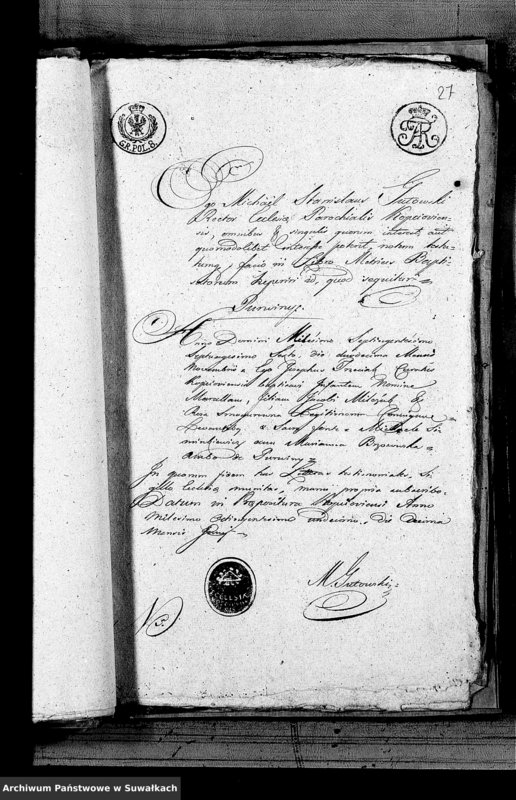 27
GR.POL.8.
FAR
Ego Michaël Stanislaus Gutowski
Rector Ecclesiæ Parochialis Kopciovien-
sis, omnibus & singulis quorum interest, aut
quomodolibet interesse poterit, notum testa-
tumq; facio in Libro Metrices Bapti-
satorum reperiri id, quod sequitur
Purwiny.
Anno Domini Milesimo Septingentesimo
Septuagesimo Sexto, die duodecima Mensis
Novembris Ego Josephus Curatus
Kopcioviensis baptisavi Infantem Nomine
filiam
Legitimorum Conjugum
Levantes & Sacro fonte Michaele
cum Marianna
ambo de Purwiny
In quorum fidem has Litteras testimoniales, Si-
gillo Ecclesiæ munitas, manu propria subscribo.
Datum in Præpositura Kopcioviensi Anno
Milesimo Octingentesimo undecimo, die decima
Mensis
M. Gutowski
ECCLESIA
Archiwum Państwowe w Suwałkach